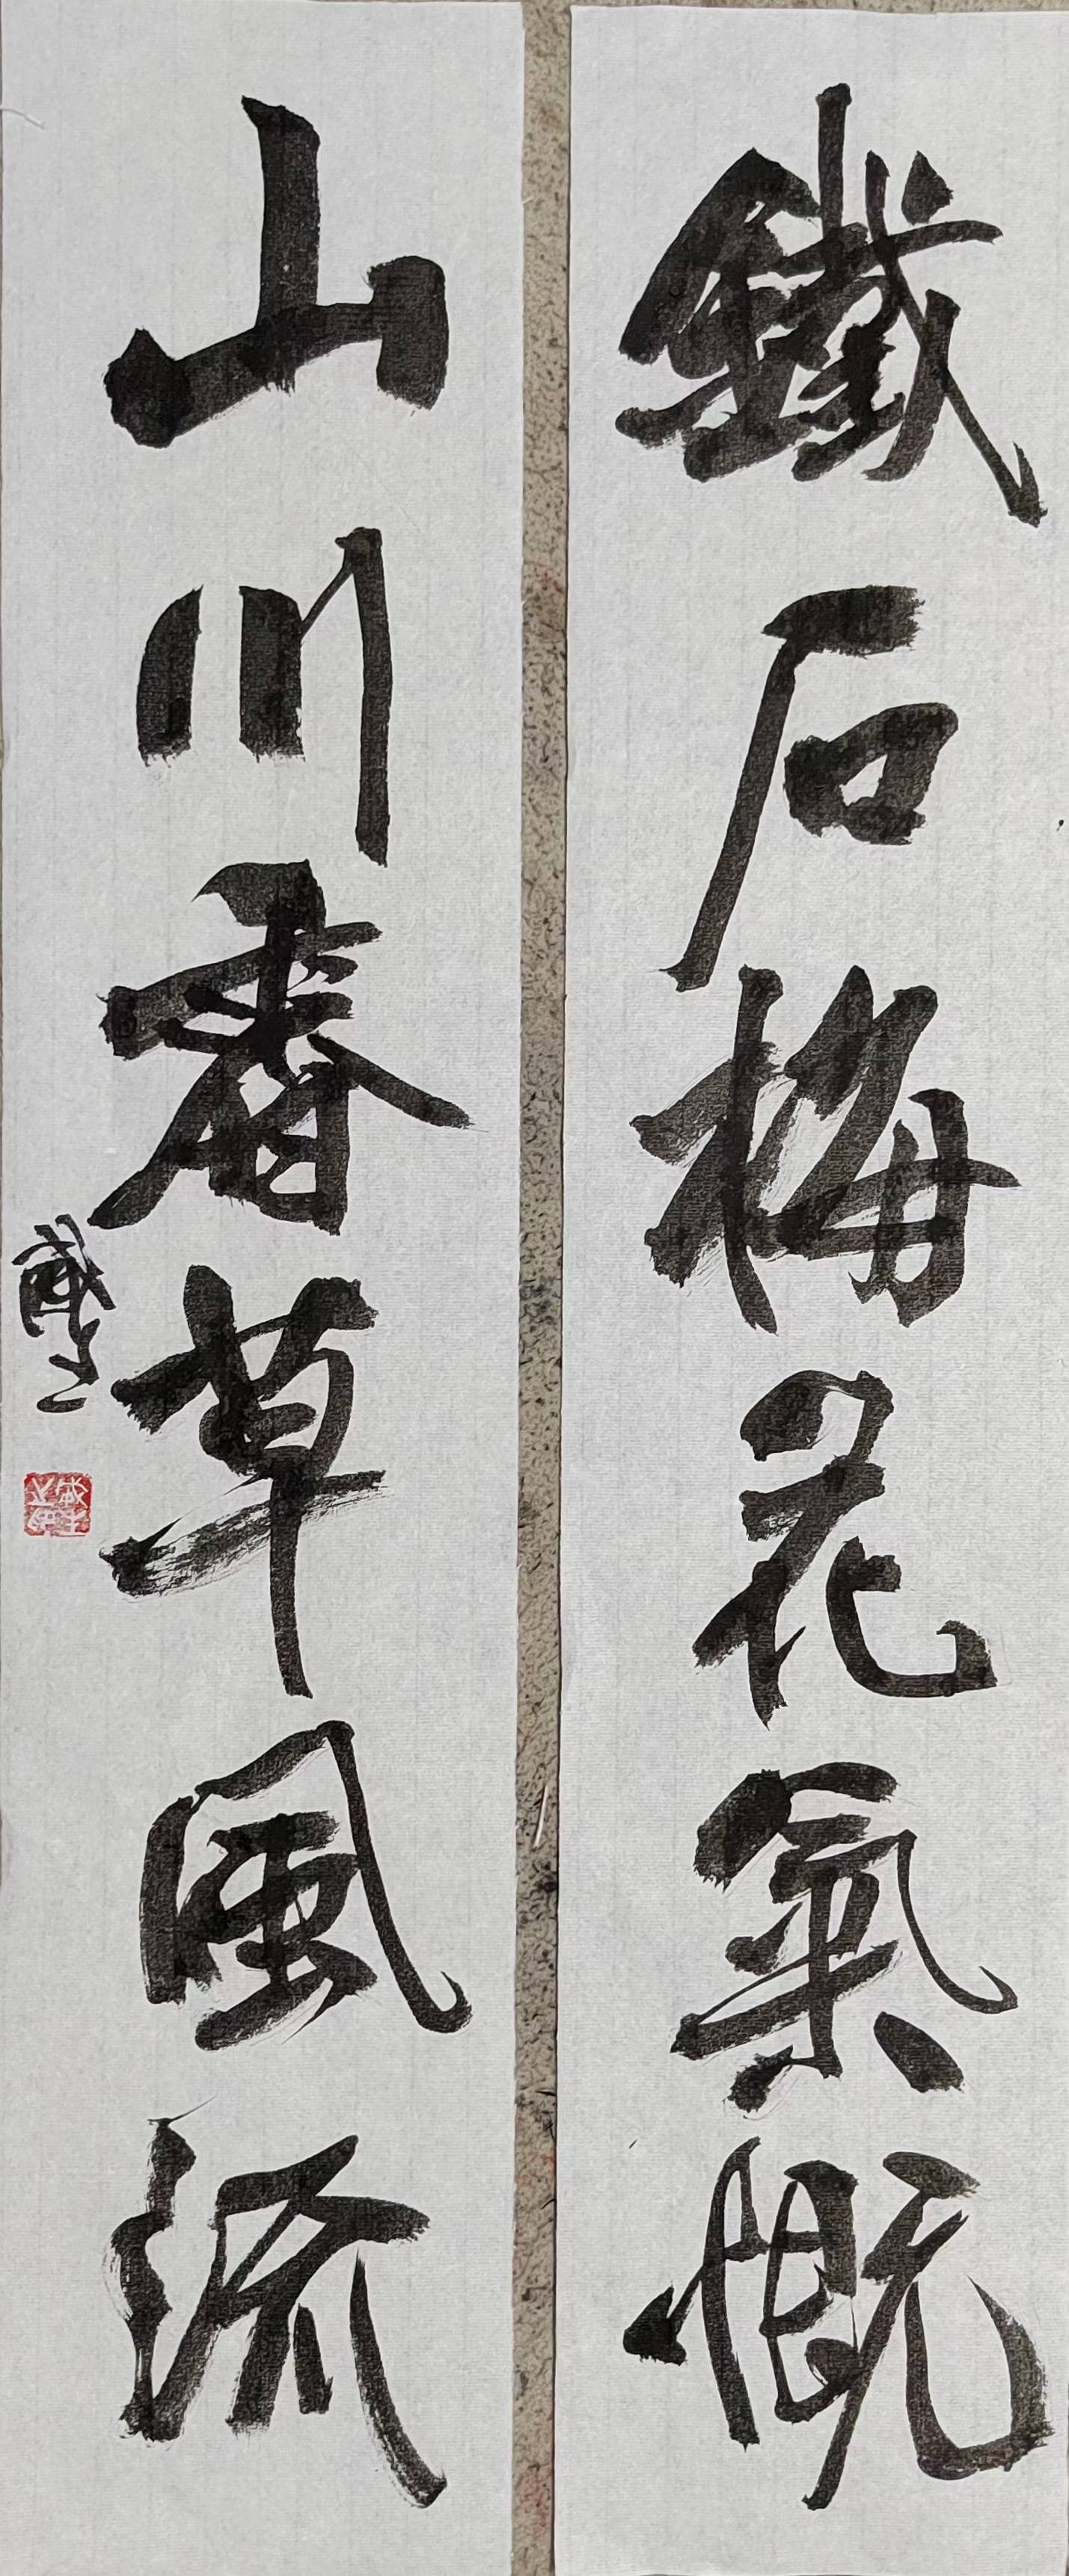 鐵石梅花氣慨
山川香草風流